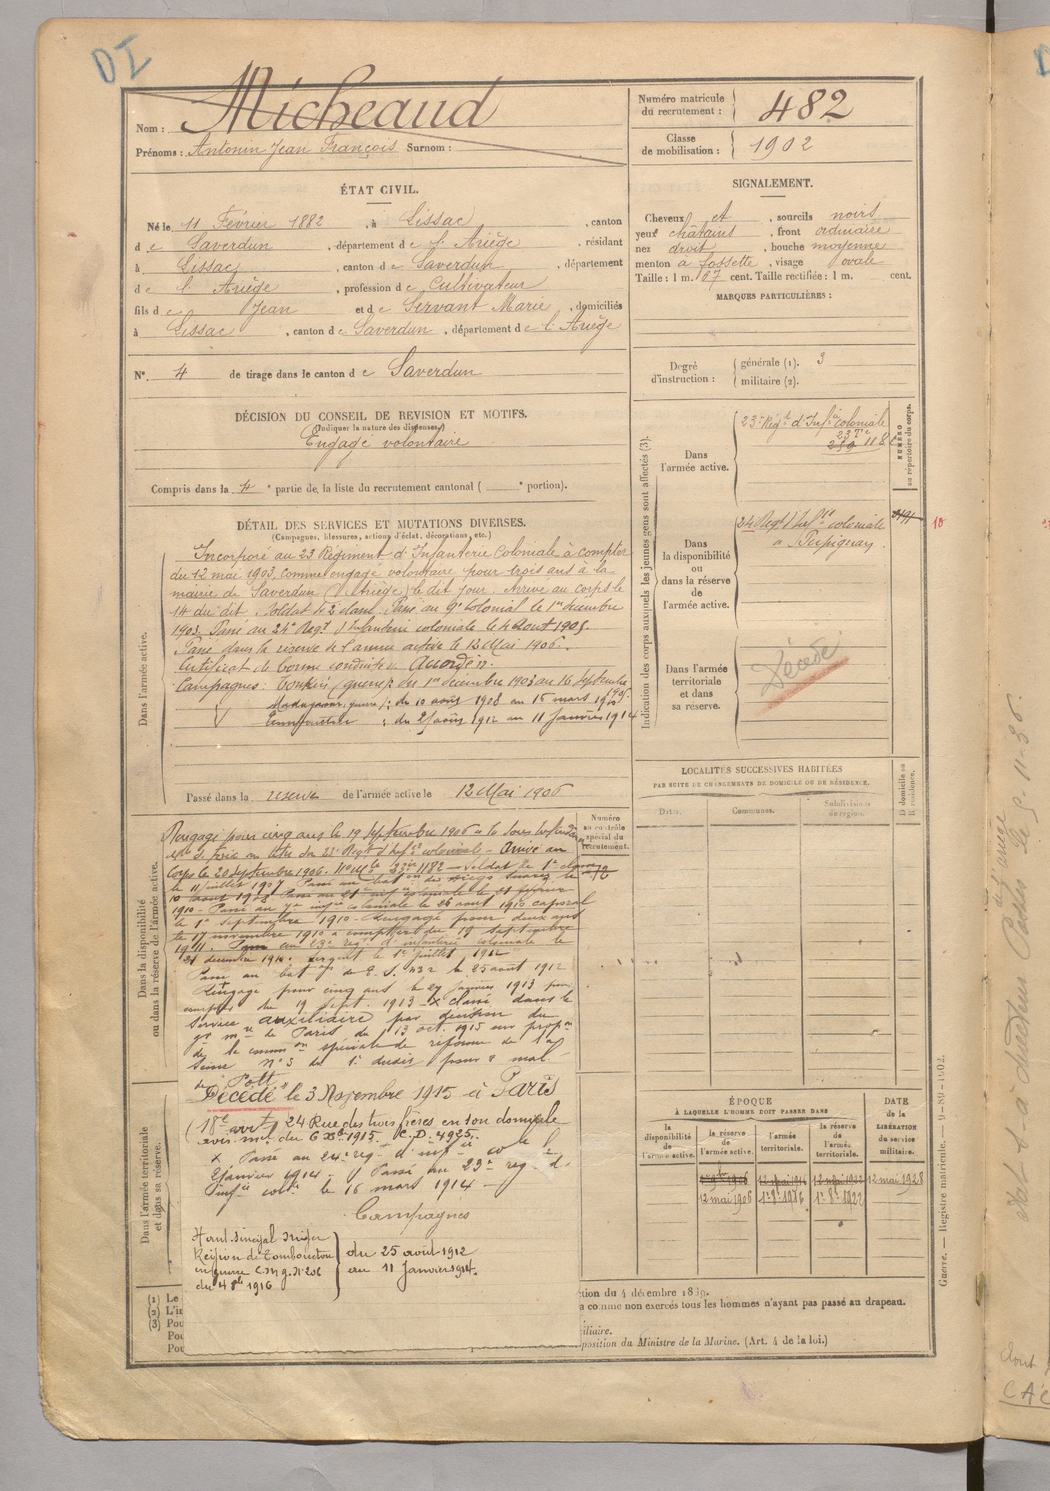 DI
Nom : Micheaud
Prénoms : Antonin Jean François Surnom :
Numéro matricule du recrutement : 482
Classe de mobilisation : 1902
ÉTAT CIVIL.
Né le 11 Février 1882, à Lissac, canton
de Saverdun, département de l'Ariège, résidant
à Lissac, canton de Saverdun, département
de l'Ariège, profession de Cultivateur
fils de Jean et de Servant Marie, domiciliés
à Lissac, canton de Saverdun, département de l'Ariège
N°. 4 de tirage dans le canton de Saverdun
SIGNALEMENT.
Cheveux et, sourcils noirs
yeux châtains, front ordinaire
nez droit, bouche moyenne
menton à fossette, visage ovale
Taille : 1 m. 67 cent. Taille rectifiée : 1 m. cent.
MARQUES PARTICULIÈRES :
Degré d'instruction : générale (1). 3
militaire (2).
DÉCISION DU CONSEIL DE REVISION ET MOTIFS.
(Indiquer la nature des dispenses)
Engagé volontaire
Compris dans la 4e partie de la liste du recrutement cantonal ( e portion).
DÉTAIL DES SERVICES ET MUTATIONS DIVERSES.
(Campagnes, blessures, actions d'éclat, décorations, etc.)
Dans l'armée active.
Incorporé au 23 Régiment d'Infanterie Coloniale à compter
du 12 mai 1903, comme engagé volontaire pour trois ans à la
mairie de Saverdun (Ariège) le dit jour. Arrivé au corps le
14 du dit. Soldat de 2e classe. Passé au 9e Colonial le 1er décembre
1903. Passé au 24e Régt d'Infanterie coloniale le 4 Aout 1905.
Passé dans la réserve de l'armée active le 12 Mai 1906.
Certificat de bonne conduite Accordé.
Campagnes : Tonkin (guerre) du 1er décembre 1903 au 16 septembre 1905.
Madagascar (guerre) : du 10 août 1908 au 15 mars 1910
: du 25 août 1912 au 11 Janvier 1914
Passé dans la réserve de l'armée active le 12 Mai 1906
Indication des corps auxquels les jeunes gens sont affectés (3).
NUMÉRO au répertoire du corps.
Dans l'armée active.
23e Régt d'Infie coloniale
Dans la disponibilité ou dans la réserve de l'armée active.
24 Régt d'Infie coloniale
à Perpignan
10
Dans l'armée territoriale et dans sa réserve.
Décédé
LOCALITÉS SUCCESSIVES HABITÉES
PAR SUITE DE CHANGEMENTS DE DOMICILE OU DE RÉSIDENCE.
Dates. Communes. Subdivisions de région. D domicile ou R résidence.
Dans la disponibilité ou dans la réserve de l'armée active.
Numéro au contrôle spécial du recrutement.
Rengagé pour cinq ans le 19 Septembre 1906 à la Sous Intendance
au titre du 23e Régt d'Infie coloniale - Arrivé au
Corps le 20 septembre 1906. Soldat de 1e classe
le 11 juillet 1907 Passé au
10 août 1908 Passé au 21e infie coloniale le 21 février
1910 - Passé au 7e infie coloniale le 26 août 1910 caporal
le 1er septembre 1910 - Rengagé pour deux ans
le 17 novembre 1910 à compter du 19 septembre
1911. Passé au 23e régt d'infanterie coloniale le
21 décembre 1910. Sergent le 1er juillet 1912
Passé au le 25 août 1912
Rengagé pour cinq ans le 29 Janvier 1913 pour
compter du 19 Sept. 1913 - x classé dans le
Service auxiliaire par décision du
de Paris du 13 oct. 1915 sur propon
de la common spéciale de réforme de la
Seine N° 3 du 1er dudit pour « mal
de Pott »
Décédé le 3 Novembre 1915 à Paris
(18e arrt) 24 Rue des trois frères en son domicile
avis du 6 Xbre 1915. C.D. 4925.
x Passé au 24e rég. d'infie colle le
janvier 1914 Passé au 23e rég. d'
Infie colle le 16 mars 1914 -
Campagnes
Haut Sénégal Niger
Région de Tombouctou
en guerre
du 4 8bre 1916
du 25 août 1912
au 11 Janvier 1914.
Dans l'armée territoriale et dans sa réserve.
ÉPOQUE
À LAQUELLE L'HOMME DOIT PASSER DANS
la disponibilité de l'armée active.
la réserve de l'armée active.
l'armée territoriale.
la réserve de l'armée territoriale.
DATE de la LIBÉRATION du service militaire.
12 mai 1916 12 mai 1922 12 mai 1928
12 mai 1906 1er 8bre 1916 1er 8bre 1922
(1) Le
(2) L'in
(3) Pou
Pou
Pou
tion du 4 décembre 1889.
a comme non exercés tous les hommes n'ayant pas passé au drapeau.
iliaire.
position du Ministre de la Marine. (Art. 4 de la loi.)
Guerre. — Registre matricule. — 9-89-1902.